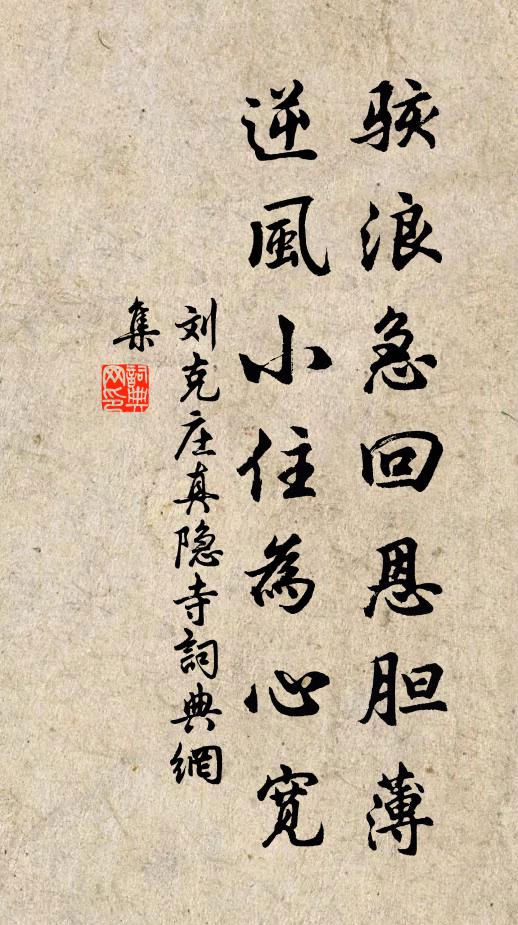 駭浪急回恩胆薄
逆風小住為心寬
刘克庄真隐寺詞典網
集
詞典
网印